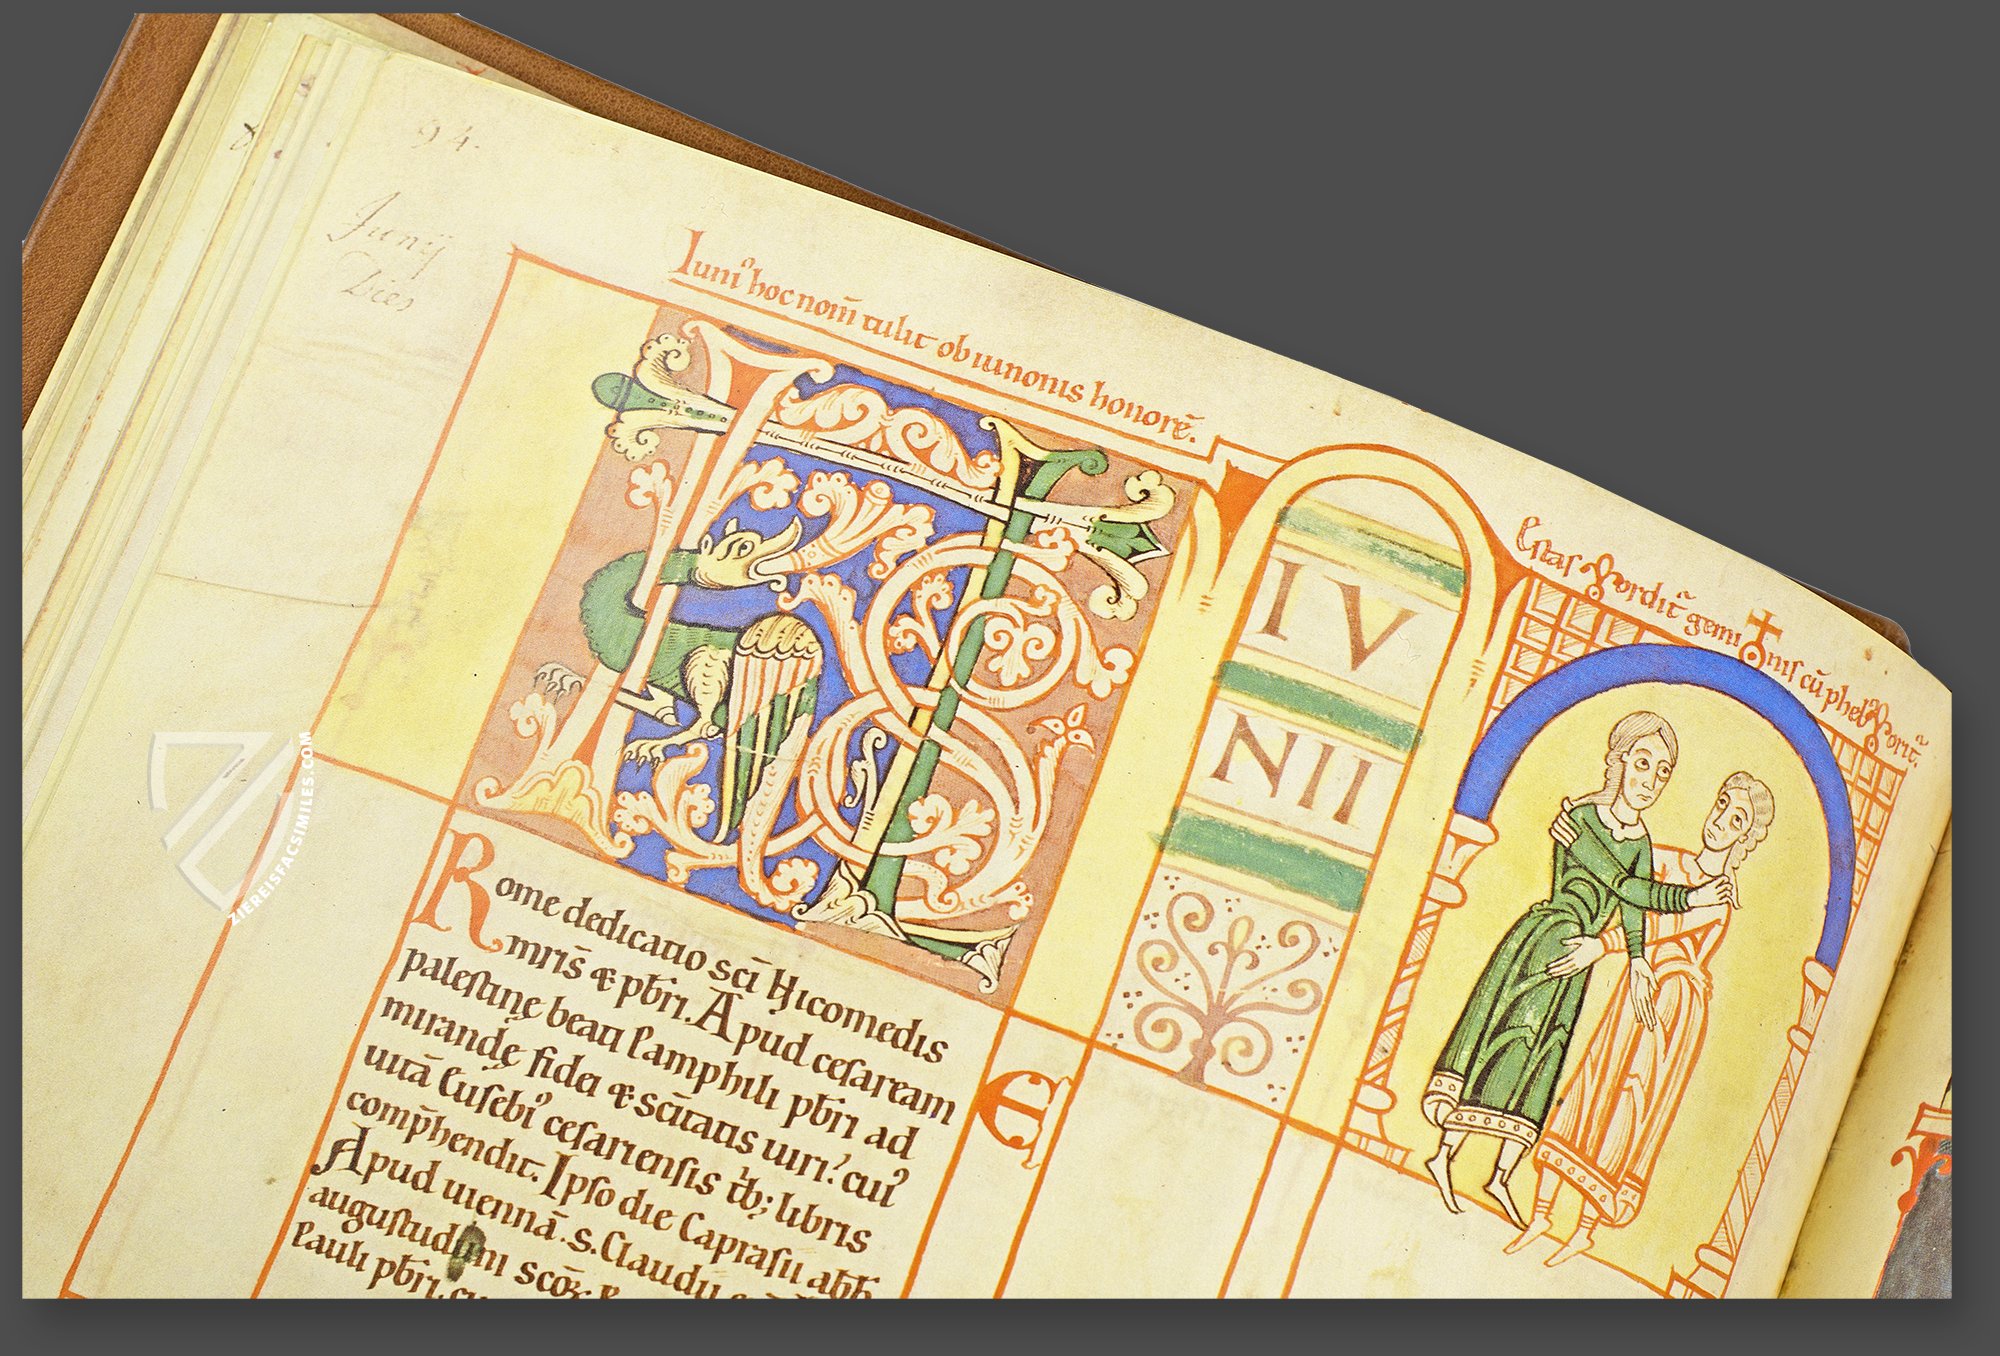 94.
Junij
Dies
Iuni⁹ hoc nom̄ tulit ob iunonis honorē.
KL
IV
NII
Estas
gemi nis cū pheb
Rome dedicatio scī Nicomedis
mris̄ & pƀri. Apud cesaream
palestinę beati Pamphili pƀri ad
mirandę fidei & scītatis uiri. cui⁹
uitā Eusebi⁹ cesariensis libris
comp̄hendit. Ipso die Caprasii abƀ
Apud uiennā. s. Claudii
augustuduni scōꝝ
Pauli pƀri.
E
ZIEREISFACSIMILES.COM